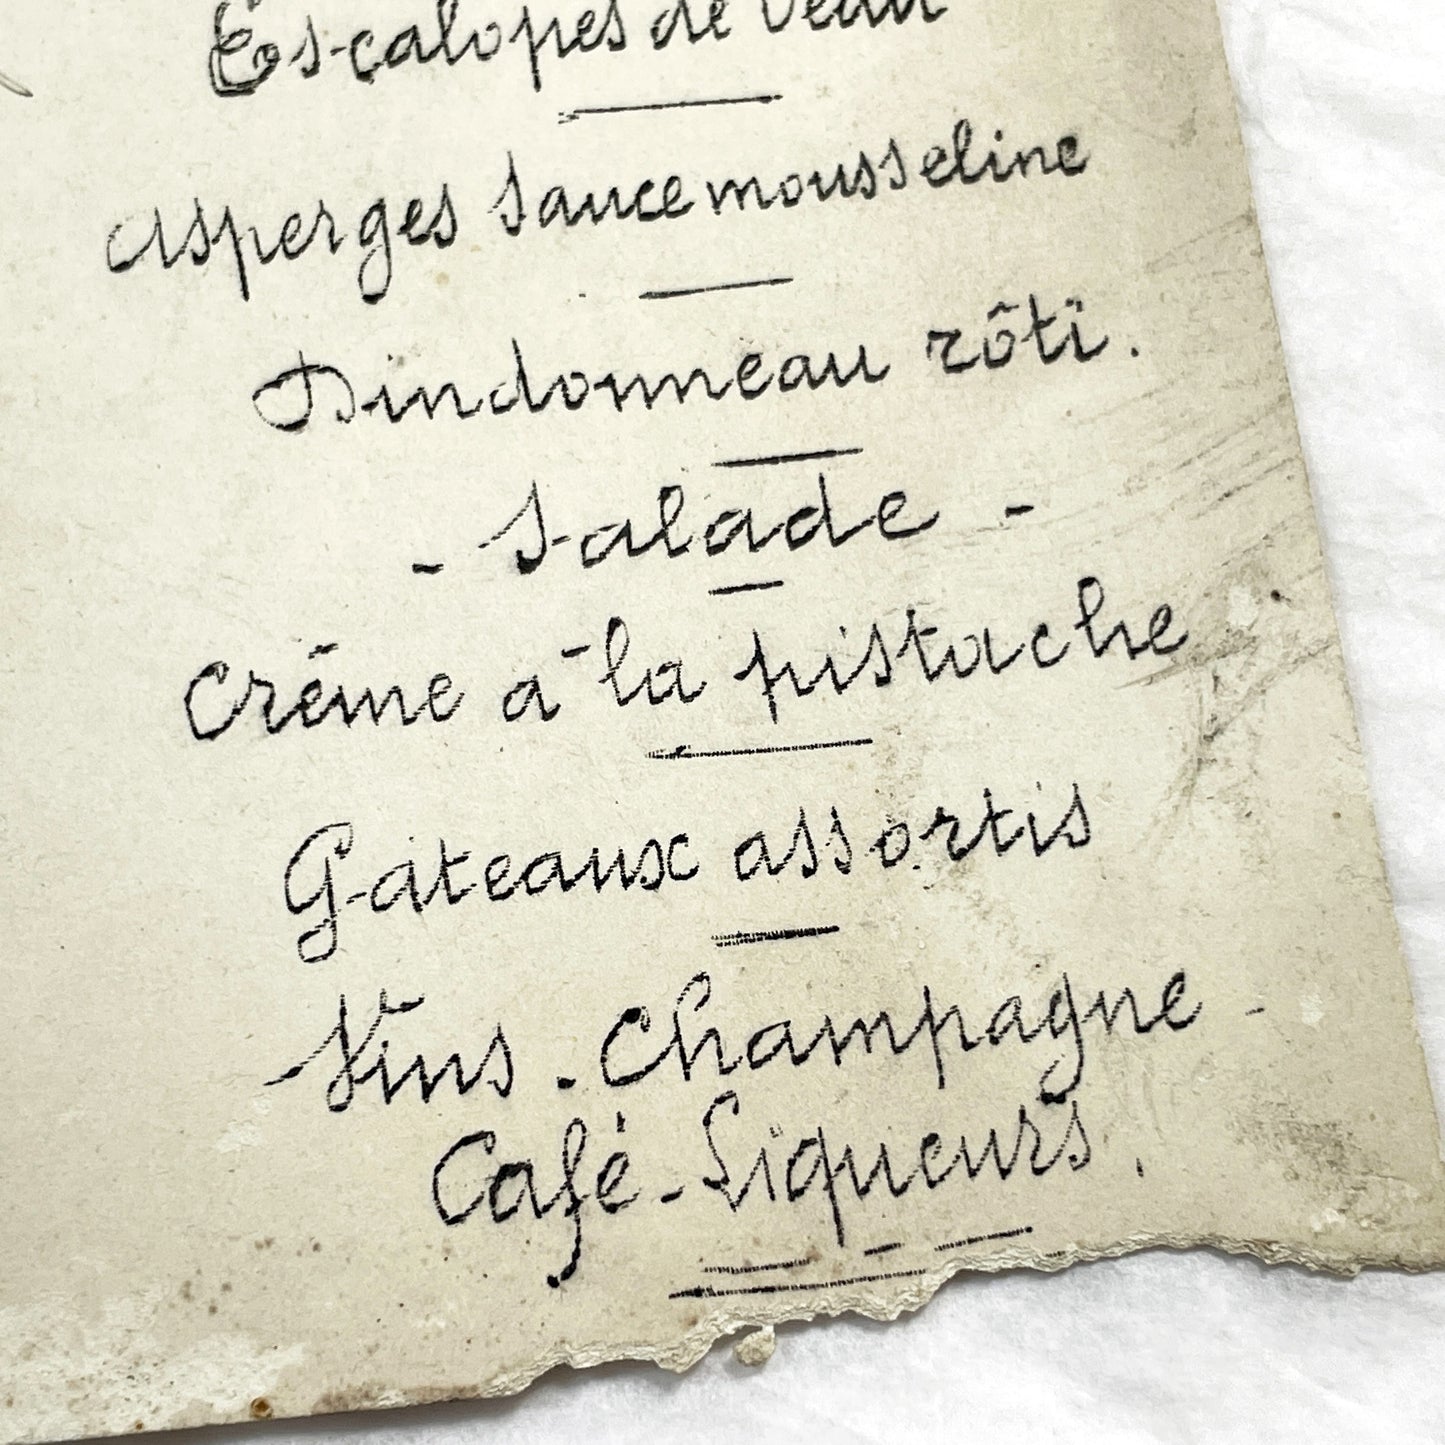 Escalopes de veau
Asperges sauce mousseline
Dindonneau rôti.
- Salade -
Crême à la pistache
Gateaux assortis
Vins - Champagne -
Café - Liqueurs.